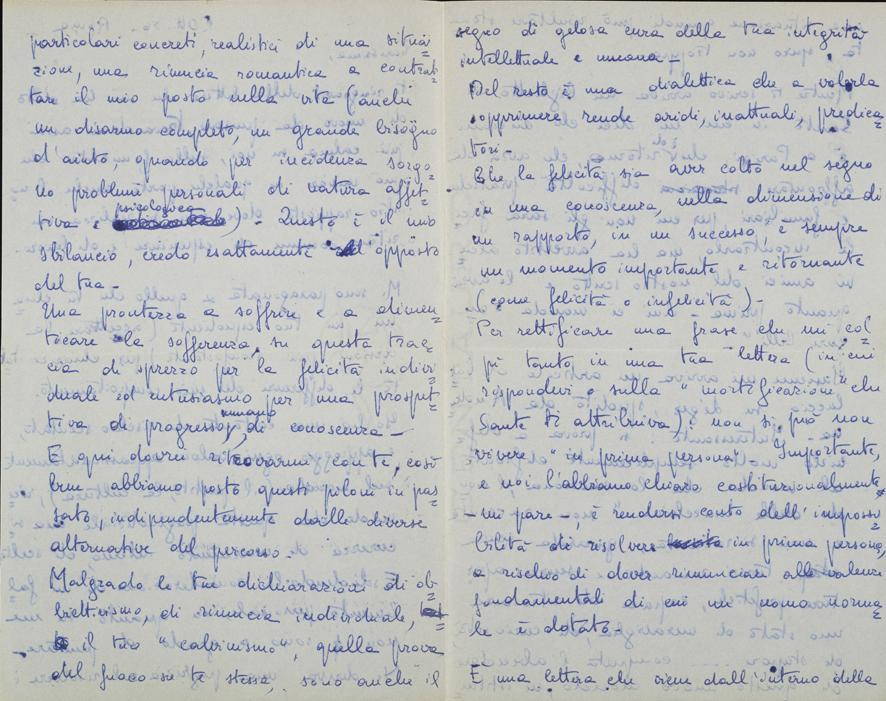 particolari concreti, realistici di una situa=
zione, una rinuncia romantica a contrat=
tare il mio posto nella vita (anche
un disarmo completo, un grande bisogno
d'aiuto, quando per incidenza sorgo=
no problemi personali di natura affet=
tiva e psicologica) - Questo è il mio
sbilancio, credo esattamente all'opposto
del tuo -
Una prontezza a soffrire e a dimen=
ticare la sofferenza, su questa trac=
cia di sprezzo per la felicità indivi=
duale ed entusiasmo per una prospet=
tiva di progresso umano, di conoscenza -
E qui dovrei ritrovarmi con te, così
bene abbiamo posto questi piloni in pas=
sato, indipendentemente dalle diverse
alternative del percorso -
Malgrado le tue dichiarazioni di ob=
biettivismo, di rinuncia individuale,
il tuo "calvinismo", quella prova
del fuoco su te stessa, sono anche il
segno di gelosa cura della tua integrità
intellettuale e umana -
Del resto è una dialettica che a volerla
sopprimere rende aridi, inattuali, predica=
tori -
Che la felicità sia aver colto nel segno
in una conoscenza, nella dimensione di
un rapporto, in un successo, è sempre
un momento importante e ritornante
(come felicità o infelicità) -
Per rettificare una frase che mi col=
pì tanto in una tua lettera (in cui
rispondevi sulla "mortificazione" che
Sante ti attribuiva): non si può non
vivere "in prima persona". Importante,
e noi l'abbiamo chiaro costituzionalmente
- mi pare -, è rendersi conto dell'impossi=
bilità di risolvere in prima persona,
a rischio di dover rinunciare alle valenze
fondamentali di cui un uomo norma=
le è dotato.
È una lettera che viene dall'interno della